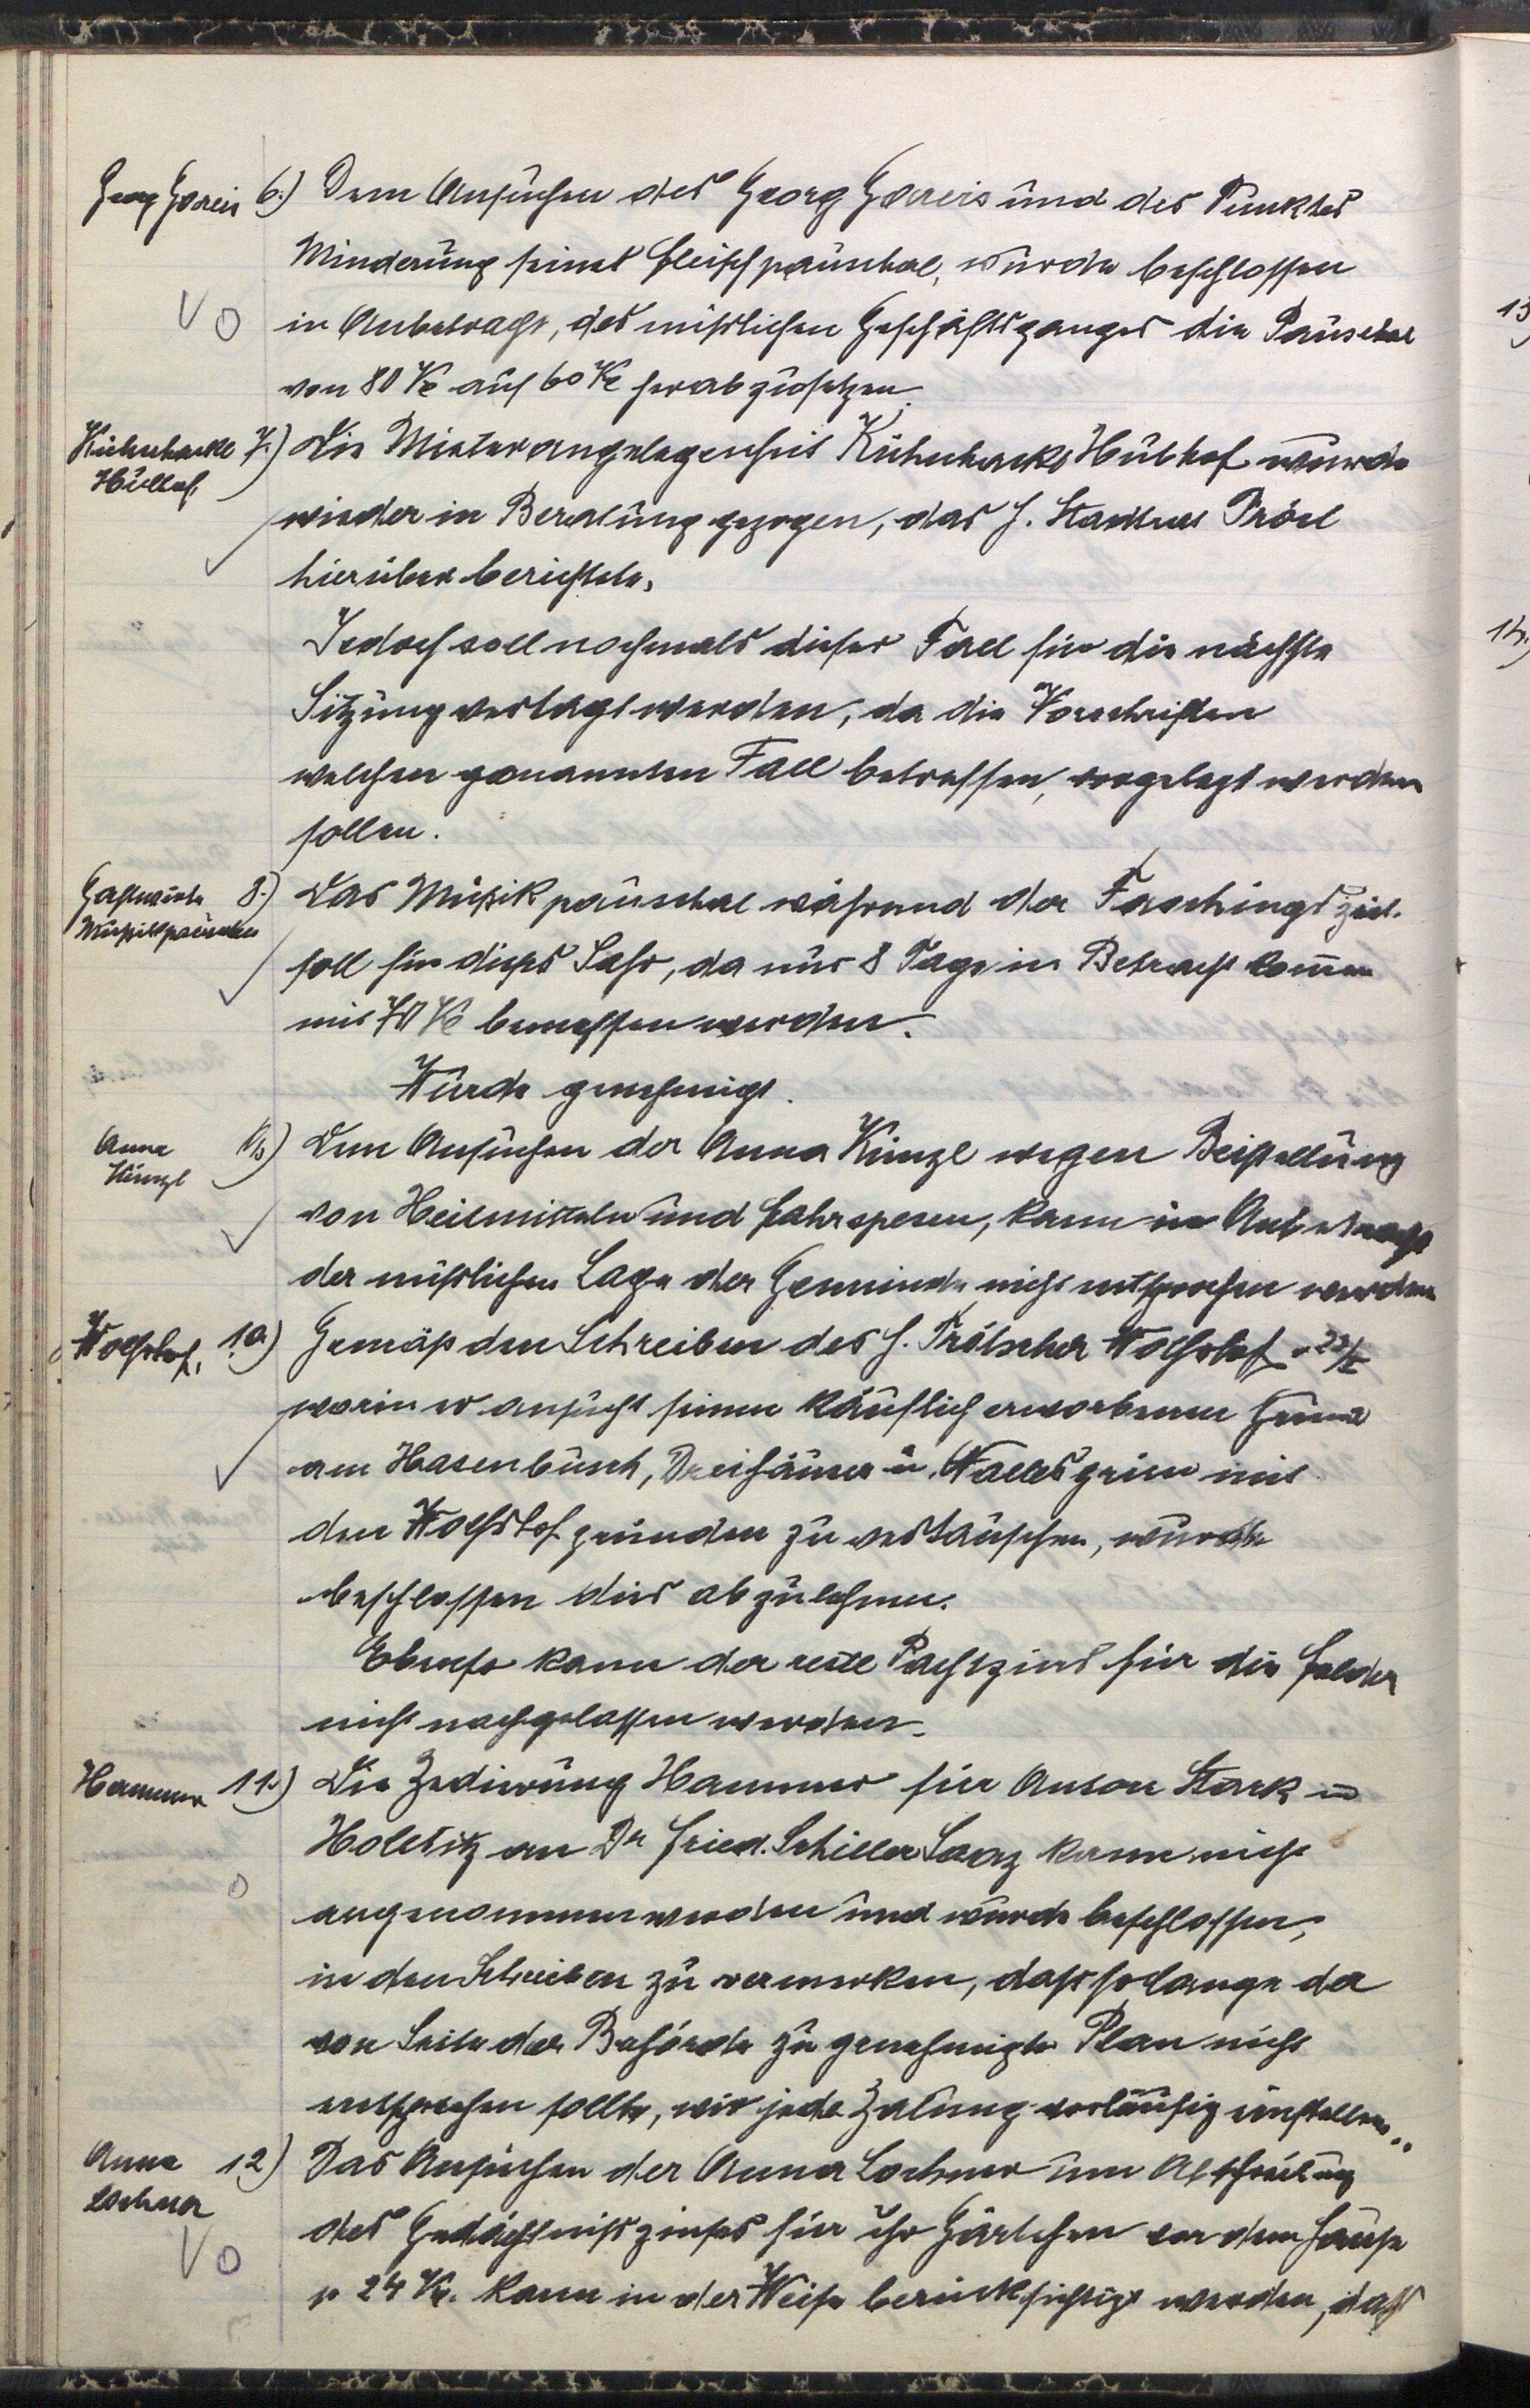 Georg Gareis 6.) Dem Ansuchen des Georg Gareis und des Punktes
Minderung seines Fleischpauschal, wurde beschlossen
in Anbetracht, des mißlichen Geschäftsganges die Pauschal
von 80 Kč auf 60 Kč herabzusetzen.
Kuhnhackl 7.) Die Mieterangelegenheit Kuhnhackl Hüthof wurde
wieder in Beratung gezogen, das H. Stadtrat Pröxl
hierüber berichtete,
Jedoch soll nochmals dieser Fall für die nächste
Sitzung vertagt werden, da die Vorschriften
welchen genannten Fall betreffen, vorgelegt werden
sollen.
Gastwirte 8.) Das Musikpauschal während der Faschingszeit
Musikpauschal
soll für dieses Jahr, da nur 8 Tage in Betracht kommen
mit 70 Kč bemessen werden.
Wurde genehmigt.
Anna Künzl 9.) Dem Ansuchen der Anna Künzl wegen Beistellung
von Heilmitteln und Fahrspesen, kann in Anbetracht
der mißlichen Lage der Gemeinde nicht entsprochen werden
Wolfshof, 10.) Gemäß den Schreiben des H. Trötscher Wolfshof
worin er ansucht seinen käuflich erworbenen Grund
am Hasenbusch, Dreihäuser u. Wallesgrün mit
den Wolfshofgründen zu vertauschen, wurde
beschlossen dies abzulehnen.
Ebenso kann der Pachtzins für die Felder
nicht nachgelassen werden.
Hammer 11.) Die Zedierung Hammer für Anton Stark in
Holetitz an Dr Fried. Schiller Saaz kann nicht
angenommen werden und wurde beschlossen,
in den Schreiben zu vermerken, daß solange der
von Seite der Behörde zu genehmigte Plan nicht
entsprechen sollte, wir jede Zalung vorläufig einstellen..
Anna Lochner 12) Das Ansuchen der Anna Lochner um Abschreibung
des Gedächtnißzinses für ihr Gärtchen vor dem Hause
p 24 Kč. kann in der Weise berücksichtigt werden, daß